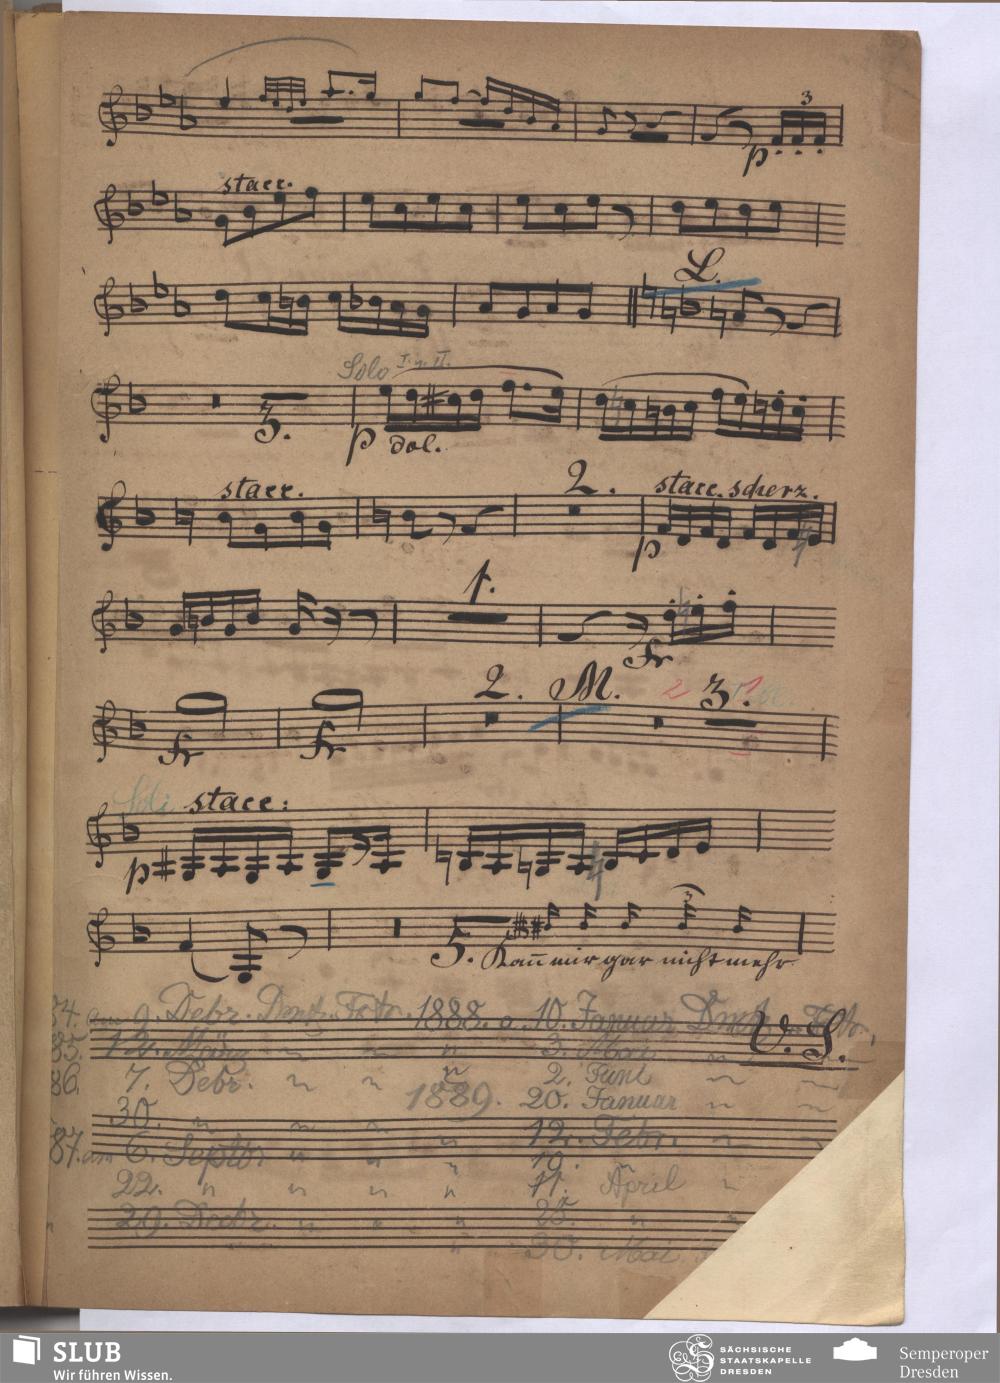 3
p
stacc.
L.
Solo I. u. II.
3.
p dol.
stacc. 2. stacc. scherz.
p
1.
tr
2. M. 2 3.
tr tr
Soli stacc:
p
3
5. Kan̄ mir gar nicht mehr
84. am 9. Debr. 1888. a. 10. Januar
V. S.
85. 12. März " " " 3. Mai "
86. 7. Debr. " " " 2. Juni "
30. " 1889. 20. Januar "
" " " 12. Febr. "
87. am 6. Septbr " " " 19. "
22. " " " " 11. April "
29. Decbr. " " " 25. "
" 30. Mai
SLUB
Wir führen Wissen.
SÄCHSISCHE
STAATSKAPELLE
DRESDEN
Semperoper
Dresden